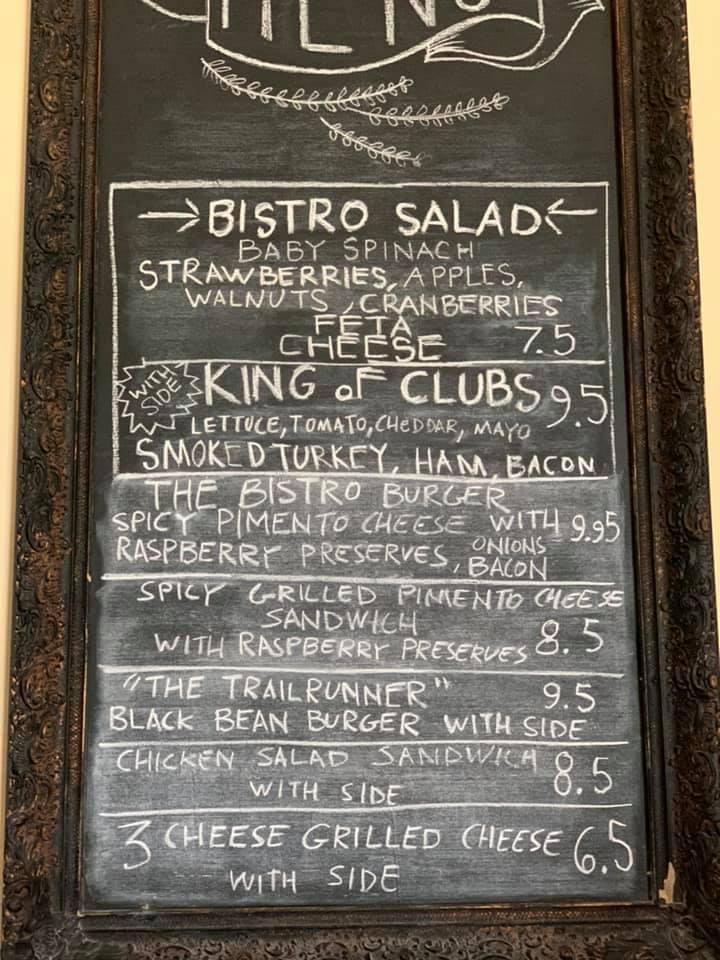 MENU
BISTRO SALAD
BABY SPINACH
STRAWBERRIES, APPLES,
WALNUTS, CRANBERRIES
FETA
CHEESE 7.5
WITH SIDE KING OF CLUBS 9.5
LETTUCE, TOMATO, CHEDDAR, MAYO
SMOKED TURKEY, HAM, BACON
THE BISTRO BURGER
SPICY PIMENTO CHEESE WITH 9.95
RASPBERRY PRESERVES, ONIONS
BACON
SPICY GRILLED PIMENTO CHEESE
SANDWICH
WITH RASPBERRY PRESERVES 8.5
"THE TRAILRUNNER" 9.5
BLACK BEAN BURGER WITH SIDE
CHICKEN SALAD SANDWICH 8.5
WITH SIDE
3 CHEESE GRILLED CHEESE 6.5
WITH SIDE